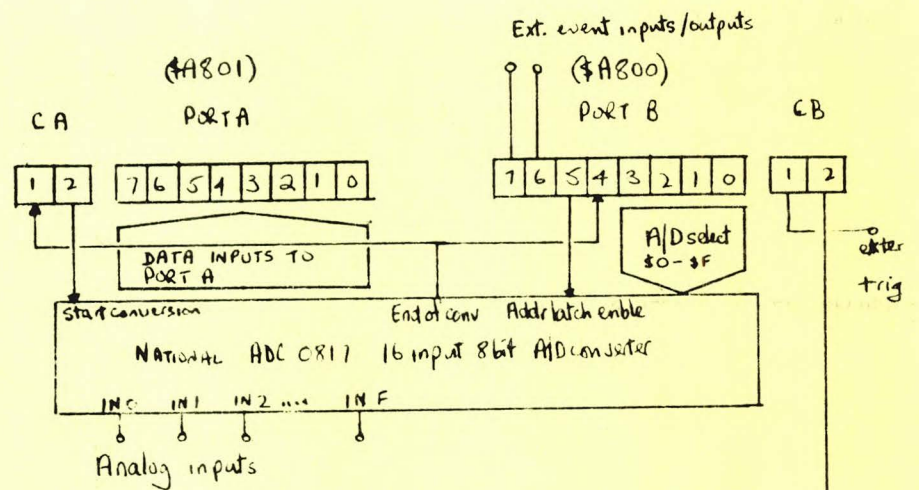 Ext. event inputs/outputs
($A801)
($A800)
CA
PORT A
PORT B
CB
1 2
7 6 5 4 3 2 1 0
7 6 5 4 3 2 1 0
1 2
DATA INPUTS TO
PORT A
A/D select
$0-$F
exter
trig
Start conversion
End of conv
Addr latch enble
NATIONAL ADC 0817 16 input 8 bit A/D converter
IN0 IN1 IN2 .... IN F
Analog inputs